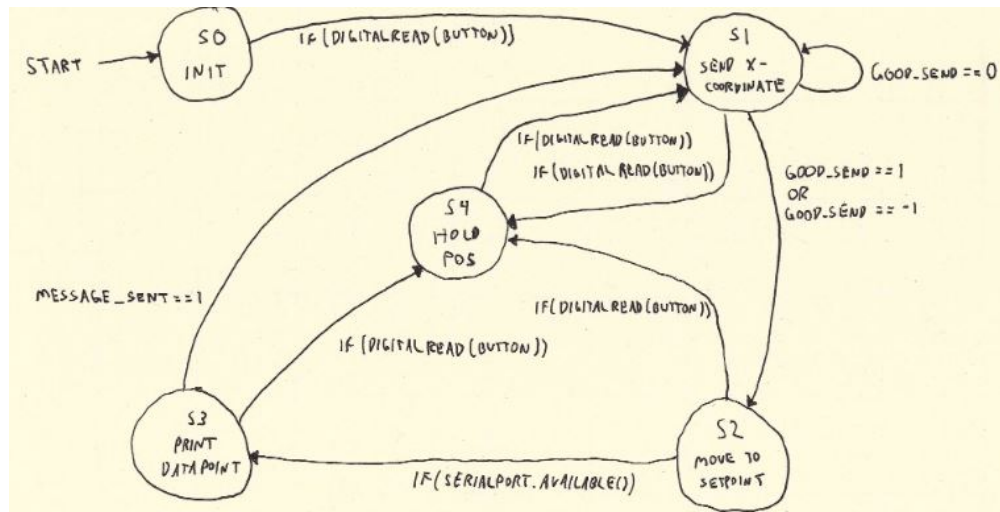 START
S0
INIT
IF(DIGITALREAD(BUTTON))
S1
SEND X-
COORDINATE
GOOD_SEND==0
IF(DIGITALREAD(BUTTON))
IF(DIGITALREAD(BUTTON))
GOOD_SEND==1
OR
GOOD_SEND==-1
S4
HOLD
POS
MESSAGE_SENT==1
IF(DIGITALREAD(BUTTON))
IF(DIGITALREAD(BUTTON))
S3
PRINT
DATAPOINT
S2
MOVE TO
SETPOINT
IF(SERIALPORT.AVAILABLE())